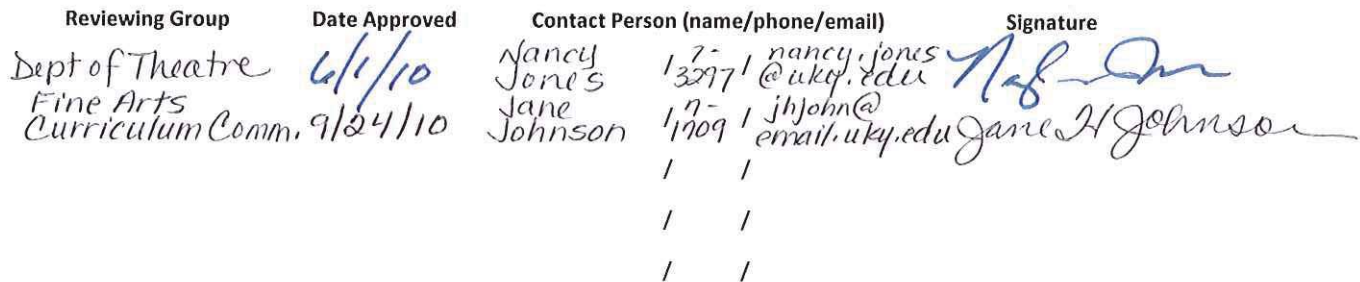 Reviewing Group Date Approved Contact Person (name/phone/email) Signature
Dept of Theatre 6/1/10 Nancy Jones / 7-3297 / nancy.jones@uky.edu
Fine Arts Curriculum Comm. 9/24/10 Jane Johnson / 7-1709 / jhjohn@email.uky.edu Jane H Johnson
/ /
/ /
/ /